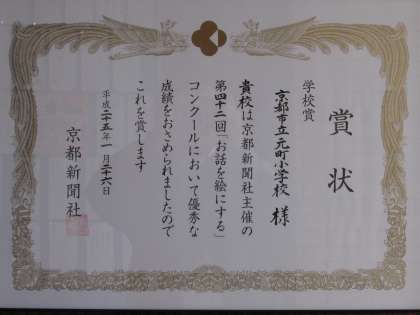 賞状
学校賞
京都市立元町小学校 様
貴校は京都新聞社主催の
第四十二回「お話を絵にする」
コンクールにおいて優秀な
成績をおさめられましたので
これを賞します
平成二十五年一月二十六日
京都新聞社